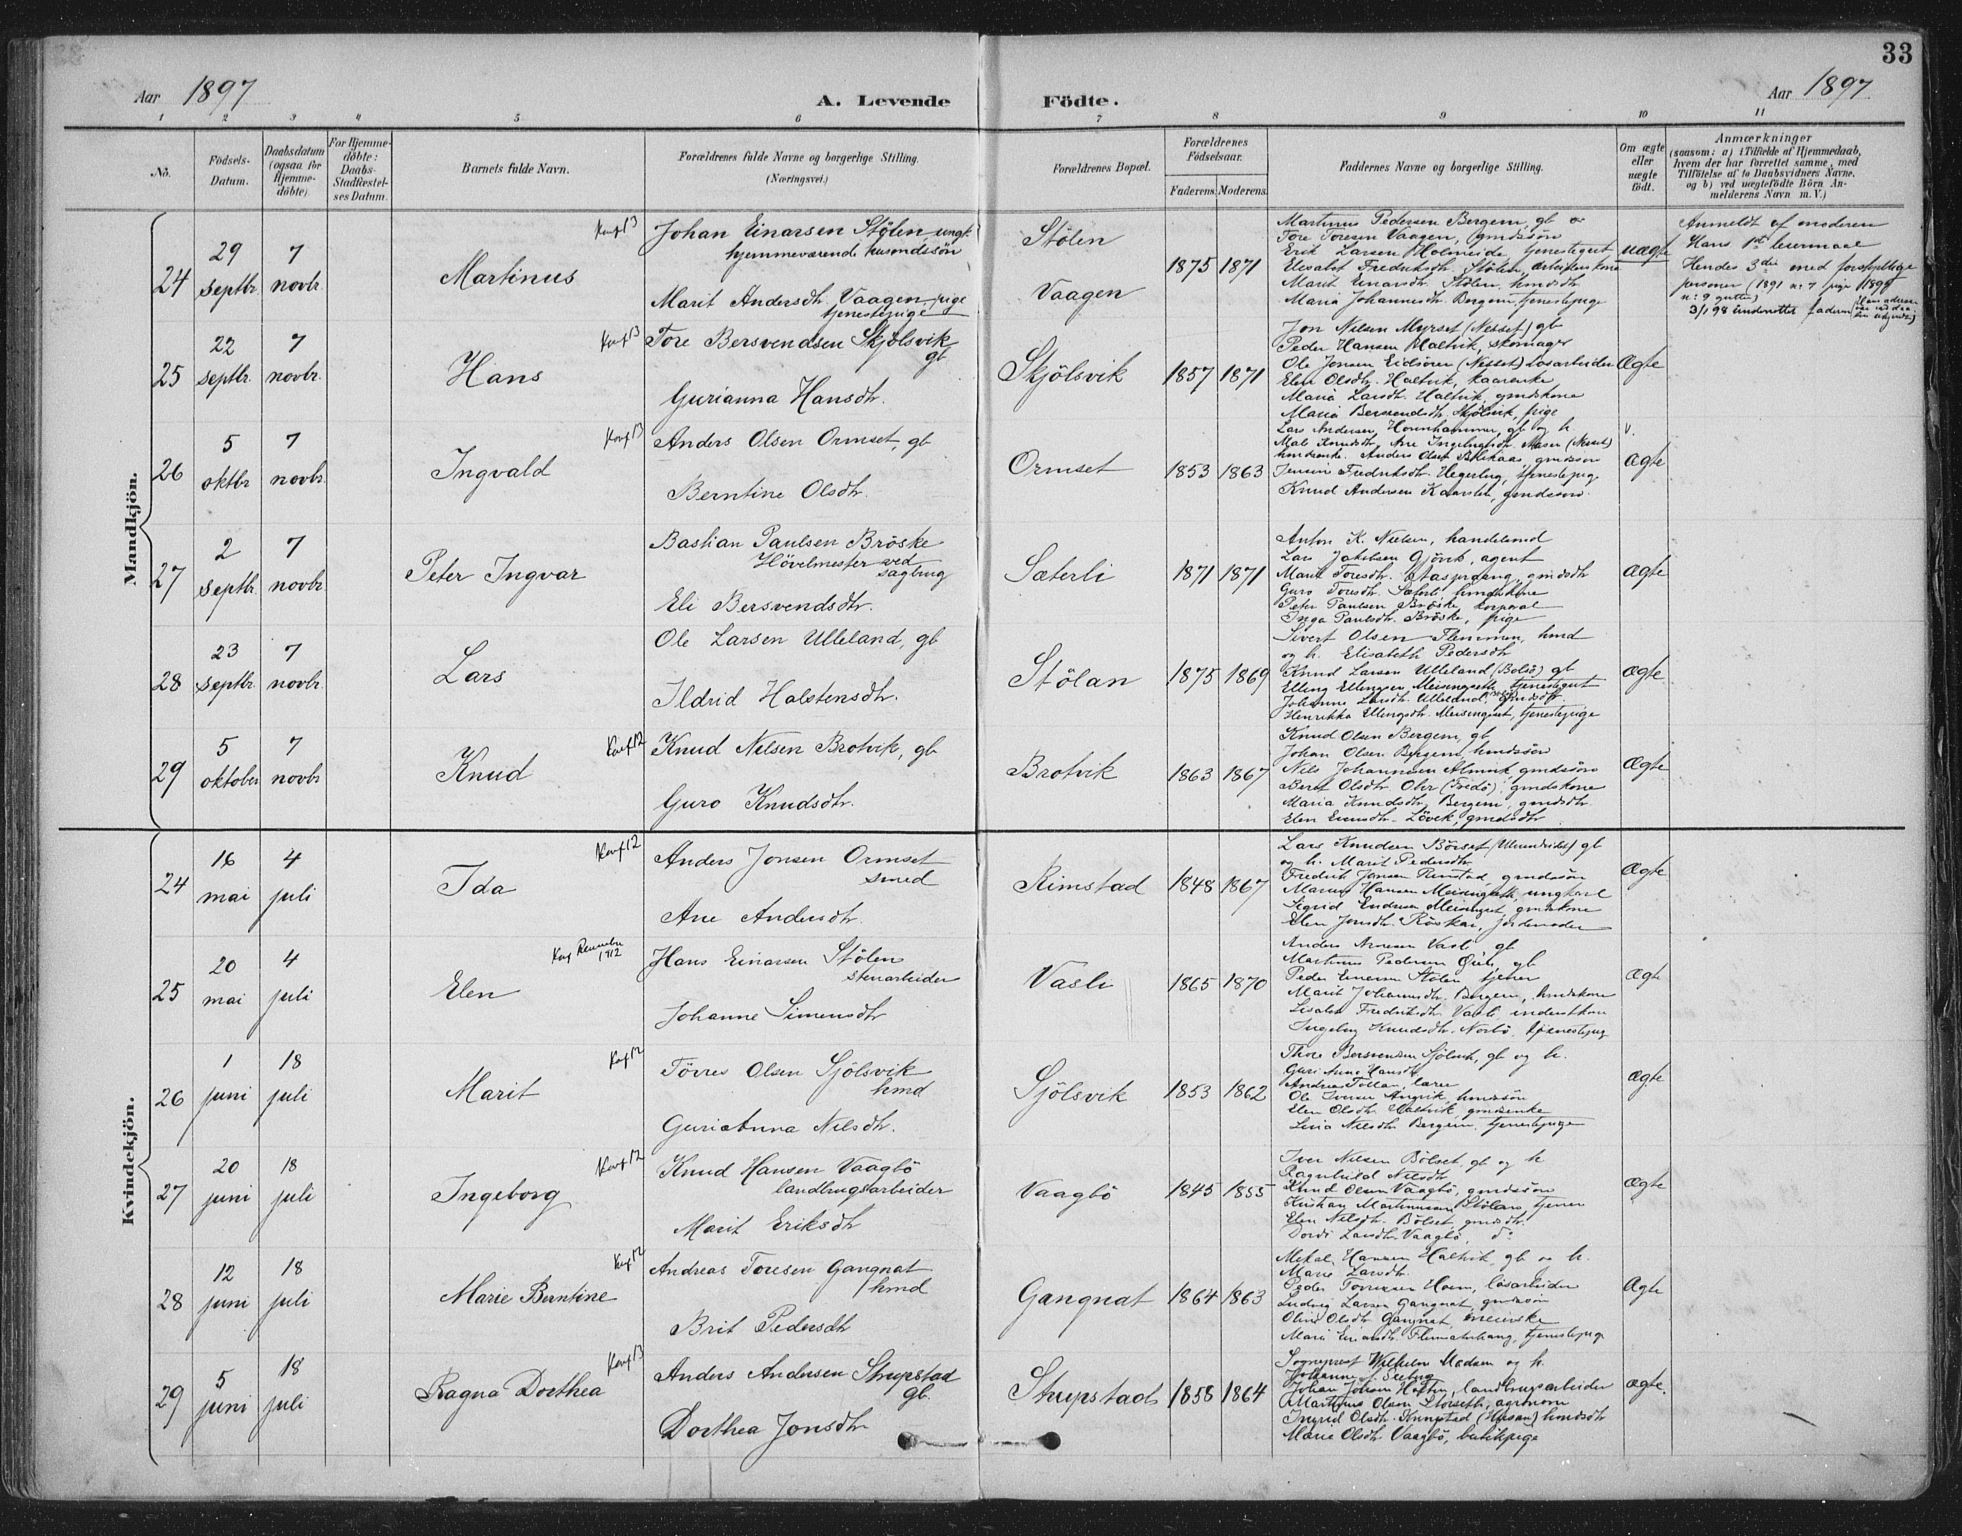 33
Aar 1897
A. Levende
Födte.
Aar 1897
1 2 3 4 5 6 7 8 9 10 11
No.
Födsels-
Datum.
Daabsdatum
(ogsaa for
Hjemme-
döbte)
For Hjemme-
döbte:
Daabs-
Stadfæstel-
ses Datum.
Barnets fulde Navn.
Forældrenes fulde Navne og borgerlige Stilling.
(Næringsvei.)
Forældrenes Bopæl.
Forældrenes
Födselsaar.
Faderens. Moderens.
Faddernes Navne og borgerlige Stilling.
Om ægte
eller
uægte
födt.
Anmærkninger
(saasom: a) i Tilfælde af Hjemmedaab,
hvem der har forrettet samme, med
Tilföielse af to Daabsvidners Navne.
og b) ved uægtefödte Börn An-
melderens Navn m. V.)
Mandkjön.
24
29
septbr.
7
novbr.
Martinus
Konf 13
Johan Einarsen Stölen, ungk.
hjemmeværende husmandssön
Marit Andersdtr. Vaagen, pige
tjenestepige
Stölen
Vaagen
1875 1871
Martinus Pedersen Bergem, gb
Tore Toresen Vaagen, gmdssön
Erik Larsen Holmeide, tjenestegut
Elisabet Fredriksdtr. Stölen, arbeiderkone
Marit Einarsdtr. Stölen, hmdsdtr.
Maria Johannesdtr. Bergem, tjenestepige
uægte
Anmeldt af moderen
Hans 1ste leiermaal
Hendes 3die med forskjellige
personer (1891 n: 7 pige 1895
n: 9 gutten)
3/1 98 underrettet faderen
25
22
septbr.
7
novbr.
Hans
Konf 13
Tore Bersvendsen Skjölsvik
gb
Gurianna Hansdtr.
Skjölsvik
1857 1871
Jon Nilsen Myrset (Nesset) gb
Peder Hansen Haltvik, skomager
Ole Jonsen Eidsören (Nesset) Lösarbeider
Elen Olsdtr. Haltvik, kaarenke
Maria Larsdtr. Haltvik, gmdskone
Maria Bersvendsdtr. Skjölsvik, pige
Ægte
26
5
oktbr
7
novbr.
Ingvald
Konf 13
Anders Olsen Ormset, gb
Berntine Olsdtr.
Ormset
1853 1863
Lars Andersen Hounhammer, gb og h.
Mali Knudsdtr., Ane Ingebrigtsdtr. (Nesset)
Anders Olsen gmdssön
Fredriksdtr. Hegerberg, tjenestepige
Knud Andersen gmdssön.
Ægte
27
2
septbr.
7
novbr.
Peter Ingvar
Bastian Paulsen Bröske
Hövelmester ved
sagbrug
Eli Bersvendsdtr.
Sæterli
1871 1871
Anton K. Nielsen, handelsmd
Lars Jakobsen Gjörvik, agent
Marit Toresdtr. gmdsdtr
Guro Toresdtr. Sæterli hmdskone
Peter Paulsen Bröske, korporal
Inga Paulsdtr. Bröske, pige
Ægte
28
23
septbr.
7
novbr.
Lars
Ole Larsen Ulleland, gb
Ildrid Halstensdtr.
Stölan
1875 1869
Sivert Olsen Flemmen, hmd
og h. Elisabeth Pedersdtr
Knud Larsen Ulleland (Bolsö) gb
Elling Ellingsen Meisingseth, tjenestegut
Johanne Larsdtr. Ulleland, gmdsdtr
Henrikka Ellingsdtr. Meisingset, tjenestepige
Ægte
29
5
oktober
7
novbr
Knud
Konf 12
Knud Nilsen Brotvik, gb
Guro Knudsdtr.
Brotvik
1863 1867
Knud Olsen Bergem, gb
Johan Olsen Bergem, hmdssön
Nils Johannesen Almvik, gmdssön
Beret Olsdtr. (Tredö), gmdskone
Maria Knudsdtr. Bergem, gmdsdtr.
Elen Lövik, gmdsdtr
Ægte
Kvindekjön.
24
16
mai
4
juli
Ida
Konf 12
Anders Jonsen Ormset
smed
Ane Andersdtr.
Rimstad
1848 1867
Lars Knudsen Börset gb
og h. Marit Pedersdtr.
Fredrik Jensen Rimstad, gmdssön
Marius Hansen Meisingseth, ungkarl
Sigrid Endresen Meisingset, gmdskone
Elen Jonsdtr. Röskar, jordemoder
Ægte
25
20
mai
4
juli
Elen
1912
Hans Einarsen Stölen
stenarbeider
Johanne Simensdtr
Vasli
1865 1870
Anders Arnesen Vasli gb
Martinus Pedersen gb
Peder Stölen tjener
Marit Johannesdtr. Bergem, hmdskone
Lisabet Fredriksdtr. Vasli
Ingeborg Knudsdtr. Norbö, tjenestepige
Ægte
26
1
juni
18
juli
Marit
Konf 12
Törres Olsen Sjölsvik
hmd
Gurianna Nilsdtr.
Sjölsvik
1853 1862
Thore Bersvendsen Sjölsvik, gb og h.
Guri Anne Hansdtr
Andreas Tollan, lærer
Ole Iversen Angvik, hmdssön
Elen Olsdtr. Haltvik, gmdsenke
Nilsdtr. Bergem, tjenestepige
Ægte
27
20
juni
18
juli
Ingeborg
Konf 12
Knud Hansen Vaagbö
landbrugsarbeider
Marit Eriksdtr
Vaagbö
1845 1855
Iver Nilsen Bölset, gb og h
Ragnhild Nilsdtr.
Knud Olsen Vaagbö, gmdssön
Kristian Martinussen Stölan, tjener
Elen Nilsdtr. Bölset, gmdsdtr.
Dordi Larsdtr. Vaagbö, do
Ægte
28
12
juni
18
juli
Marie Berntine
Konf 12
Andreas Toresen Gangnat
hmd
Brit Pedersdtr
Gangnat
1864 1863
Mikal Hansen Haltvik, gb og h.
Marie Larsdtr.
Peder Toresen Hoem, lösarbeider
Ludvig Larsen Gangnat, gmdssön
Oline Olsdtr. Gangnat,
Marie tjenestepige
Ægte
29
5
juni
18
juli
Ragna Dorthea
Konf 13
Anders Andersen Strupstad
gb.
Dorthea Jonsdtr
Strupstad
1858 1864
Sogneprest Wilhelm Madsen og h.
Johanne f. Seeberg
Johan Johnsen landbrugsarbeider
Martinus Olsen Storseth, agronom
Ingrid Olsdtr. hmdsdtr
Marie Olsdtr Vaagbö, butikpige
Ægte.